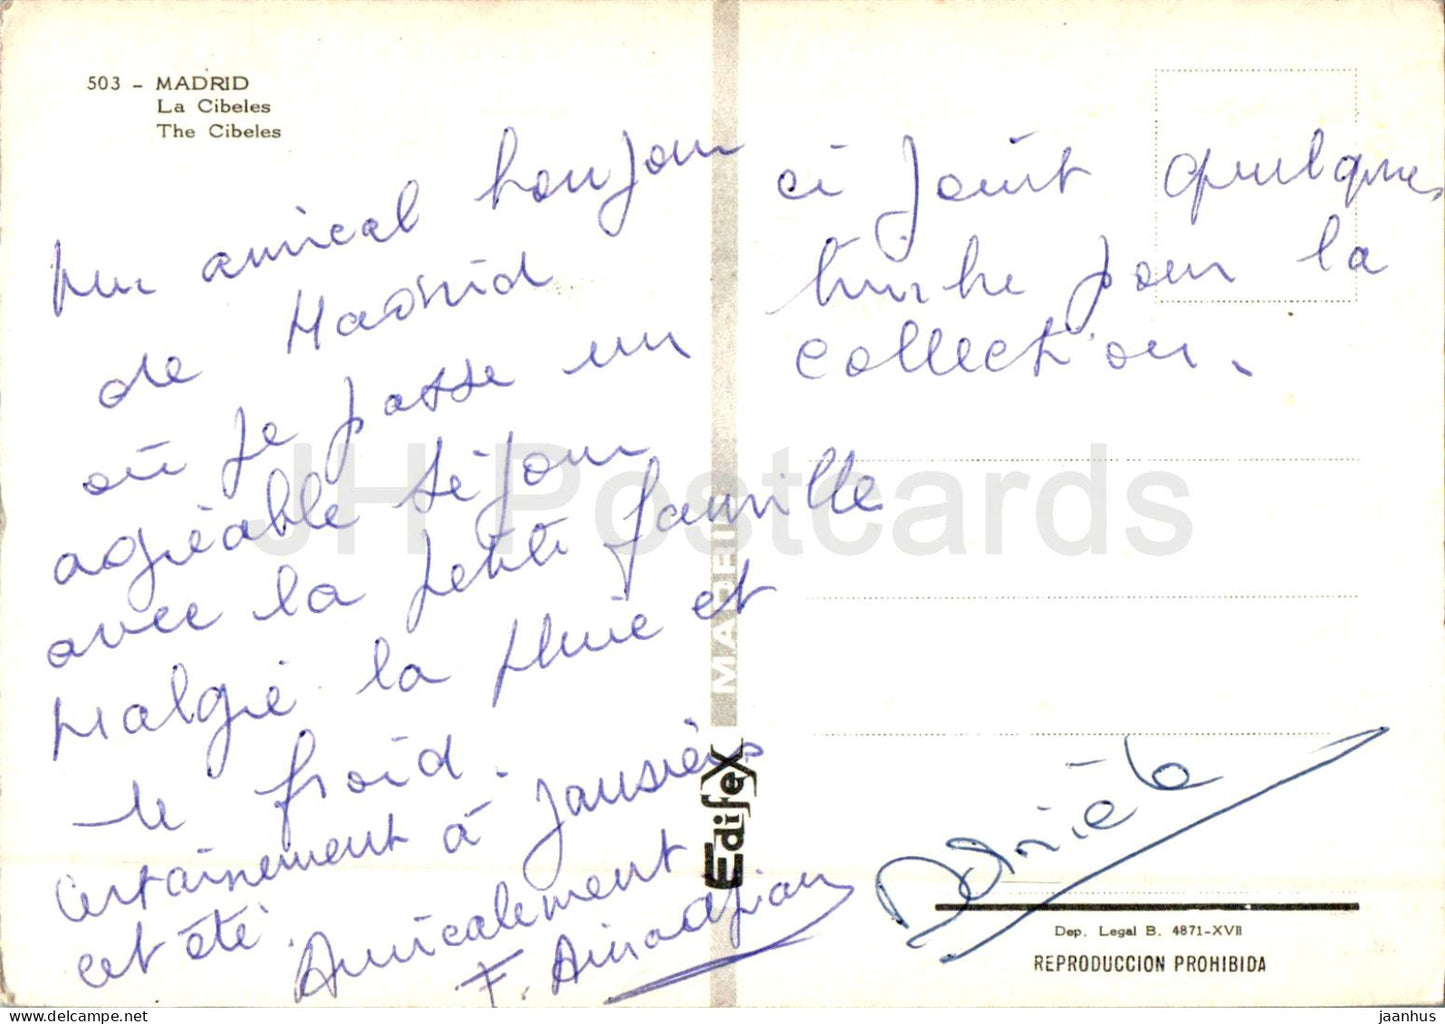 503 - MADRID
La Cibeles
The Cibeles
un amical bonjour
de Madrid
où je passe un
agréable séjour
avec la petite famille
malgré la pluie et
le froid.
Certainement à Jausiers
cet été.
Amicalement
F.
ci joint quelques
timbre pour la
collection.
JH Postcards
MADRID
EdifeX
Dep. Legal B. 4871-XVII
REPRODUCCION PROHIBIDA
delcampe.net
jaanhus